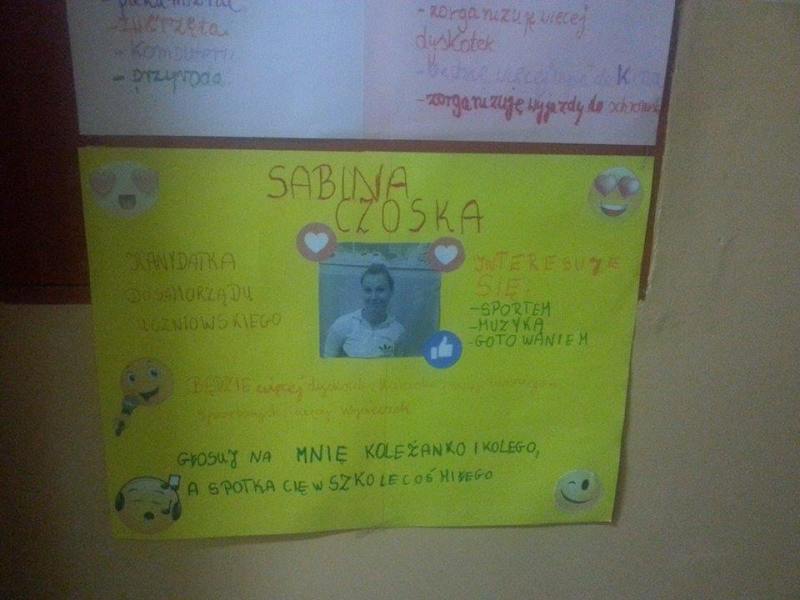 - ZWIERZĘTA
- Komputery
- przyroda
- zorganizuję więcej
dyskotek
- zorganizuję wyjazdy do
SABINA
CZOSKA
KANYDATKA
DO SAMORZĄDU
UCZNIOWSKIEGO
INTERESUJE
SIĘ:
-SPORTEM
-MUZYKĄ
-GOTOWANIEM
BĘDZIE więcej dyskotek,
sportowych i więcej wycieczek
GŁOSUJ NA MNIĘ KOLEŻANKO I KOLEGO,
A SPOTKA CIĘ W SZKOLE COŚ MIŁEGO